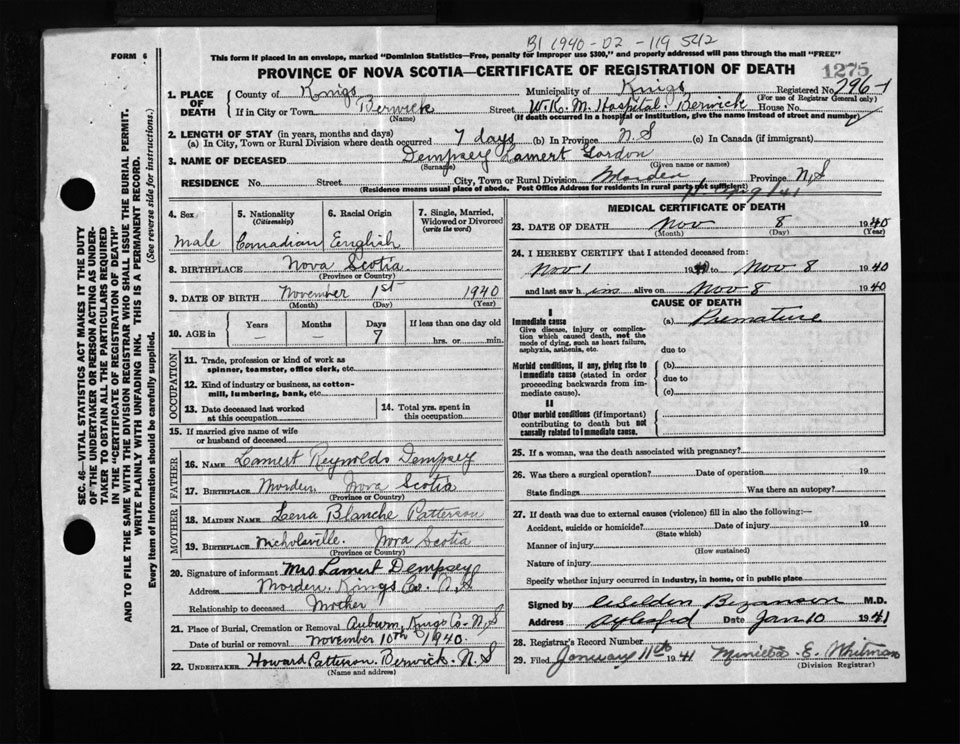 B1 1940-02-119542
FORM 6
This form if placed in an envelope, marked "Dominion Statistics—Free, penalty for improper use $300," and properly addressed will pass through the mail "FREE"
PROVINCE OF NOVA SCOTIA—CERTIFICATE OF REGISTRATION OF DEATH
1275
1. PLACE OF DEATH County of Kings Municipality of Kings Registered No. 296-1
(For use of Registrar General only)
If in City or Town Berwick Street W.K.M. Hospital, Berwick House No.
(Name) (If death occurred in a hospital or institution, give the name instead of street and number)
2. LENGTH OF STAY (in years, months and days)
(a) In City, Town or Rural Division where death occurred 7 days (b) In Province N.S (c) In Canada (if immigrant)
3. NAME OF DECEASED Dempsey Lamert Gordon
(Surname) (Given name or names)
RESIDENCE No. Street City, Town or Rural Division Morden Province N.S
(Residence means usual place of abode. Post Office Address for residents in rural parts not sufficient)
4. Sex Male
5. Nationality (Citizenship) Canadian
6. Racial Origin English
7. Single, Married, Widowed or Divorced (write the word)
8. BIRTHPLACE Nova Scotia
(Province or Country)
9. DATE OF BIRTH November 1st 1940
(Month) (Day) (Year)
10. AGE in Years — Months — Days 7 If less than one day old hrs. or min.
OCCUPATION
11. Trade, profession or kind of work as spinner, teamster, office clerk, etc.
12. Kind of industry or business, as cotton-mill, lumbering, bank, etc.
13. Date deceased last worked at this occupation
14. Total yrs. spent in this occupation
15. If married give name of wife or husband of deceased
FATHER
16. NAME Lamert Reynolds Dempsey
17. BIRTHPLACE Morden Nova Scotia
(Province or Country)
MOTHER
18. MAIDEN NAME Lena Blanche Patterson
19. BIRTHPLACE Nicholsville. Nova Scotia
(Province or Country)
20. Signature of informant Mrs Lamert Dempsey
Address Morden, Kings Co. N.S
Relationship to deceased Mother
21. Place of Burial, Cremation or Removal Auburn, Kings Co. N.S
Date of burial or removal November 10th 1940.
22. UNDERTAKER Howard Patterson. Berwick. N.S
(Name and address)
MEDICAL CERTIFICATE OF DEATH
23. DATE OF DEATH Nov 8 1940
(Month) (Day) (Year)
24. I HEREBY CERTIFY that I attended deceased from
Nov 1 1940 to Nov 8 1940
and last saw him alive on Nov 8 1940
CAUSE OF DEATH
I
Immediate cause (a) Premature
Give disease, injury or complication which caused death, not the mode of dying, such as heart failure, asphyxia, asthenia, etc.
due to
Morbid conditions, if any, giving rise to immediate cause (stated in order proceeding backwards from immediate cause).
(b)
due to
(c)
II
Other morbid conditions (if important) contributing to death but not causally related to immediate cause.
25. If a woman, was the death associated with pregnancy?
26. Was there a surgical operation? Date of operation 19
State findings Was there an autopsy?
27. If death was due to external causes (violence) fill in also the following:—
Accident, suicide or homicide? Date of injury 19
(State which)
Manner of injury
(How sustained)
Nature of injury
Specify whether injury occurred in industry, in home, or in public place
Signed by Bezanson M.D.
Address Aylesford Date Jan 10 1941
28. Registrar's Record Number
29. Filed January 11th 1941 E. Whitman
(Division Registrar)
SEC. 46—VITAL STATISTICS ACT MAKES IT THE DUTY
OF THE UNDERTAKER OR PERSON ACTING AS UNDER-
TAKER TO OBTAIN ALL THE PARTICULARS REQUIRED
IN THE "CERTIFICATE OF REGISTRATION OF DEATH"
AND TO FILE THE SAME WITH THE DIVISION REGISTRAR WHO SHALL ISSUE THE BURIAL PERMIT.
WRITE PLAINLY WITH UNFADING INK. THIS IS A PERMANENT RECORD.
Every item of information should be carefully supplied. (See reverse side for instructions.)